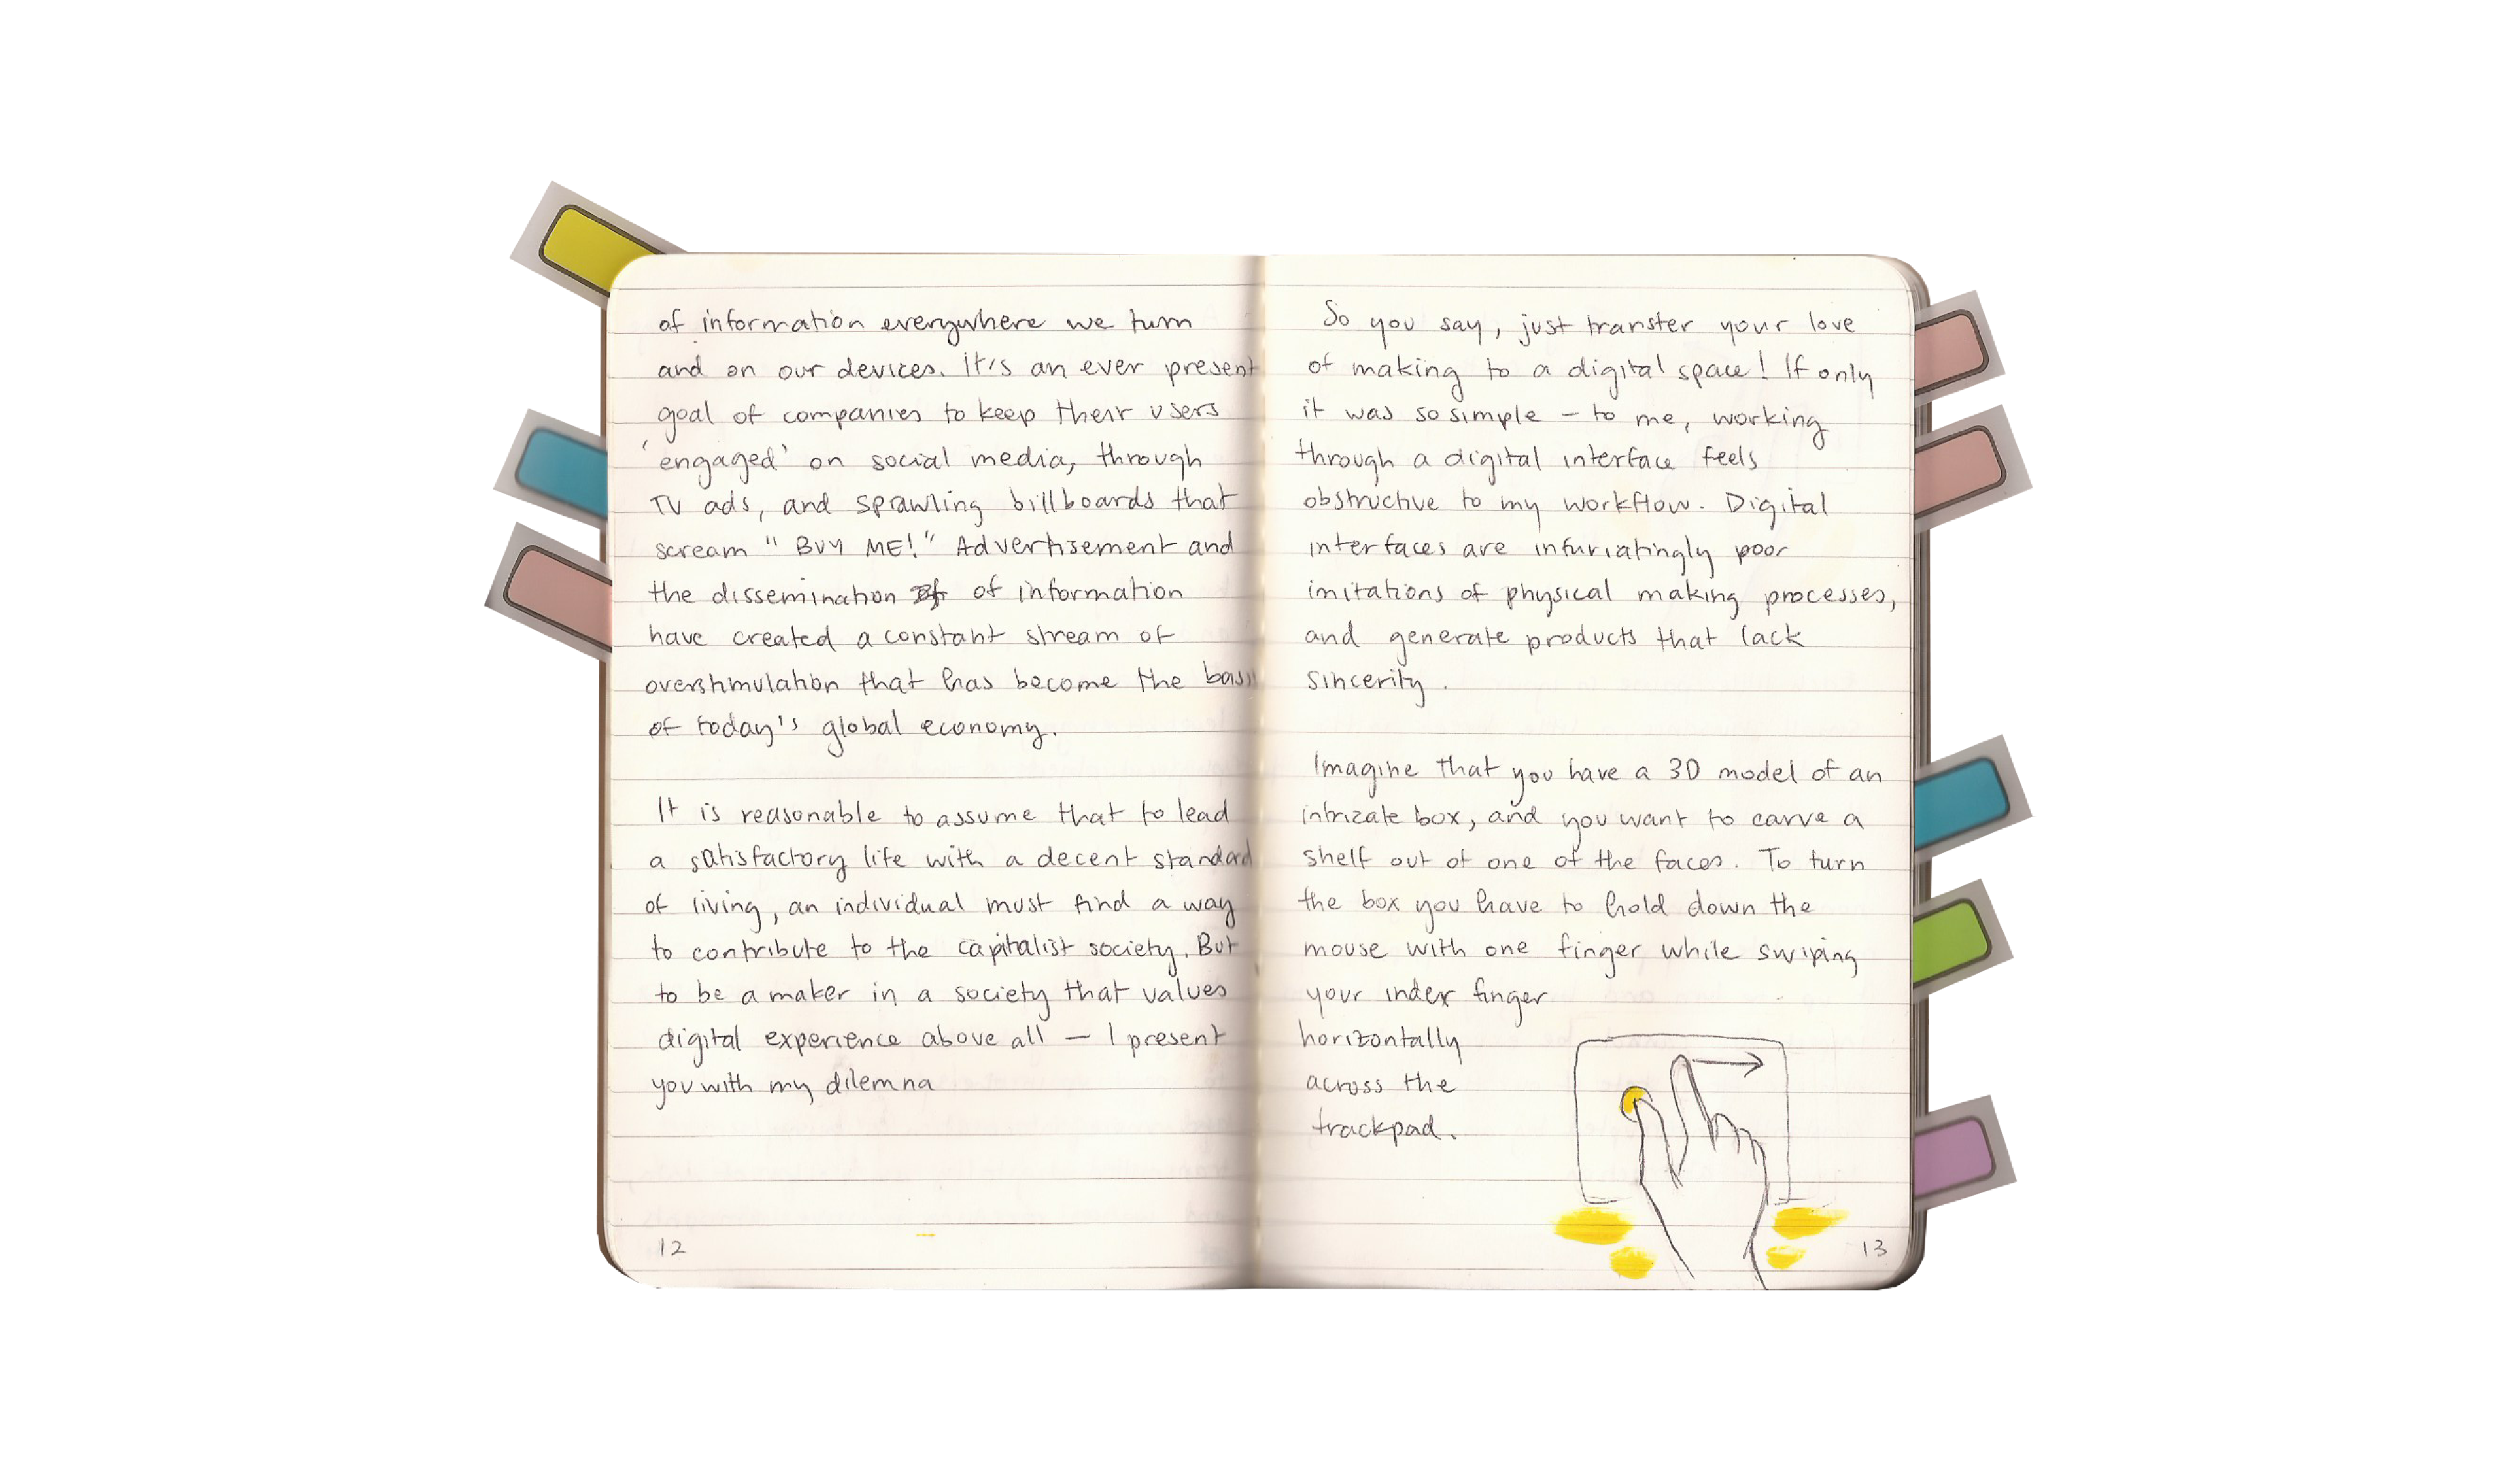 of information everywhere we turn
and on our devices. It's an ever present
goal of companies to keep their users
'engaged' on social media, through
TV ads, and sprawling billboards that
scream "BUY ME!" Advertisement and
the dissemination of information
have created a constant stream of
overstimulation that has become the basis
of today's global economy.
It is reasonable to assume that to lead
a satisfactory life with a decent standard
of living, an individual must find a way
to contribute to the capitalist society. But
to be a maker in a society that values
digital experience above all — I present
you with my dilemna
12
So you say, just transfer your love
of making to a digital space! If only
it was so simple — to me, working
through a digital interface feels
obstructive to my workflow. Digital
interfaces are infuriatingly poor
imitations of physical making processes,
and generate products that lack
sincerity.
Imagine that you have a 3D model of an
intricate box, and you want to carve a
shelf out of one of the faces. To turn
the box you have to hold down the
mouse with one finger while swiping
your index finger
horizontally
across the
trackpad.
13